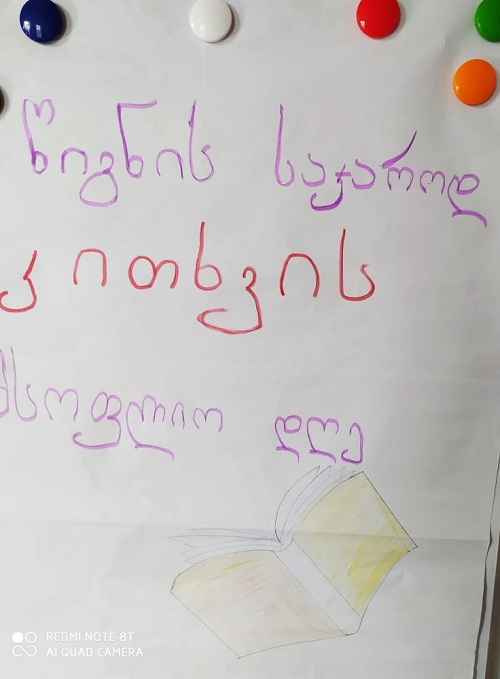 წიგნის საჯაროდ
კითხვის
მსოფლიო დღე
REDMI NOTE 8T
AI QUAD CAMERA